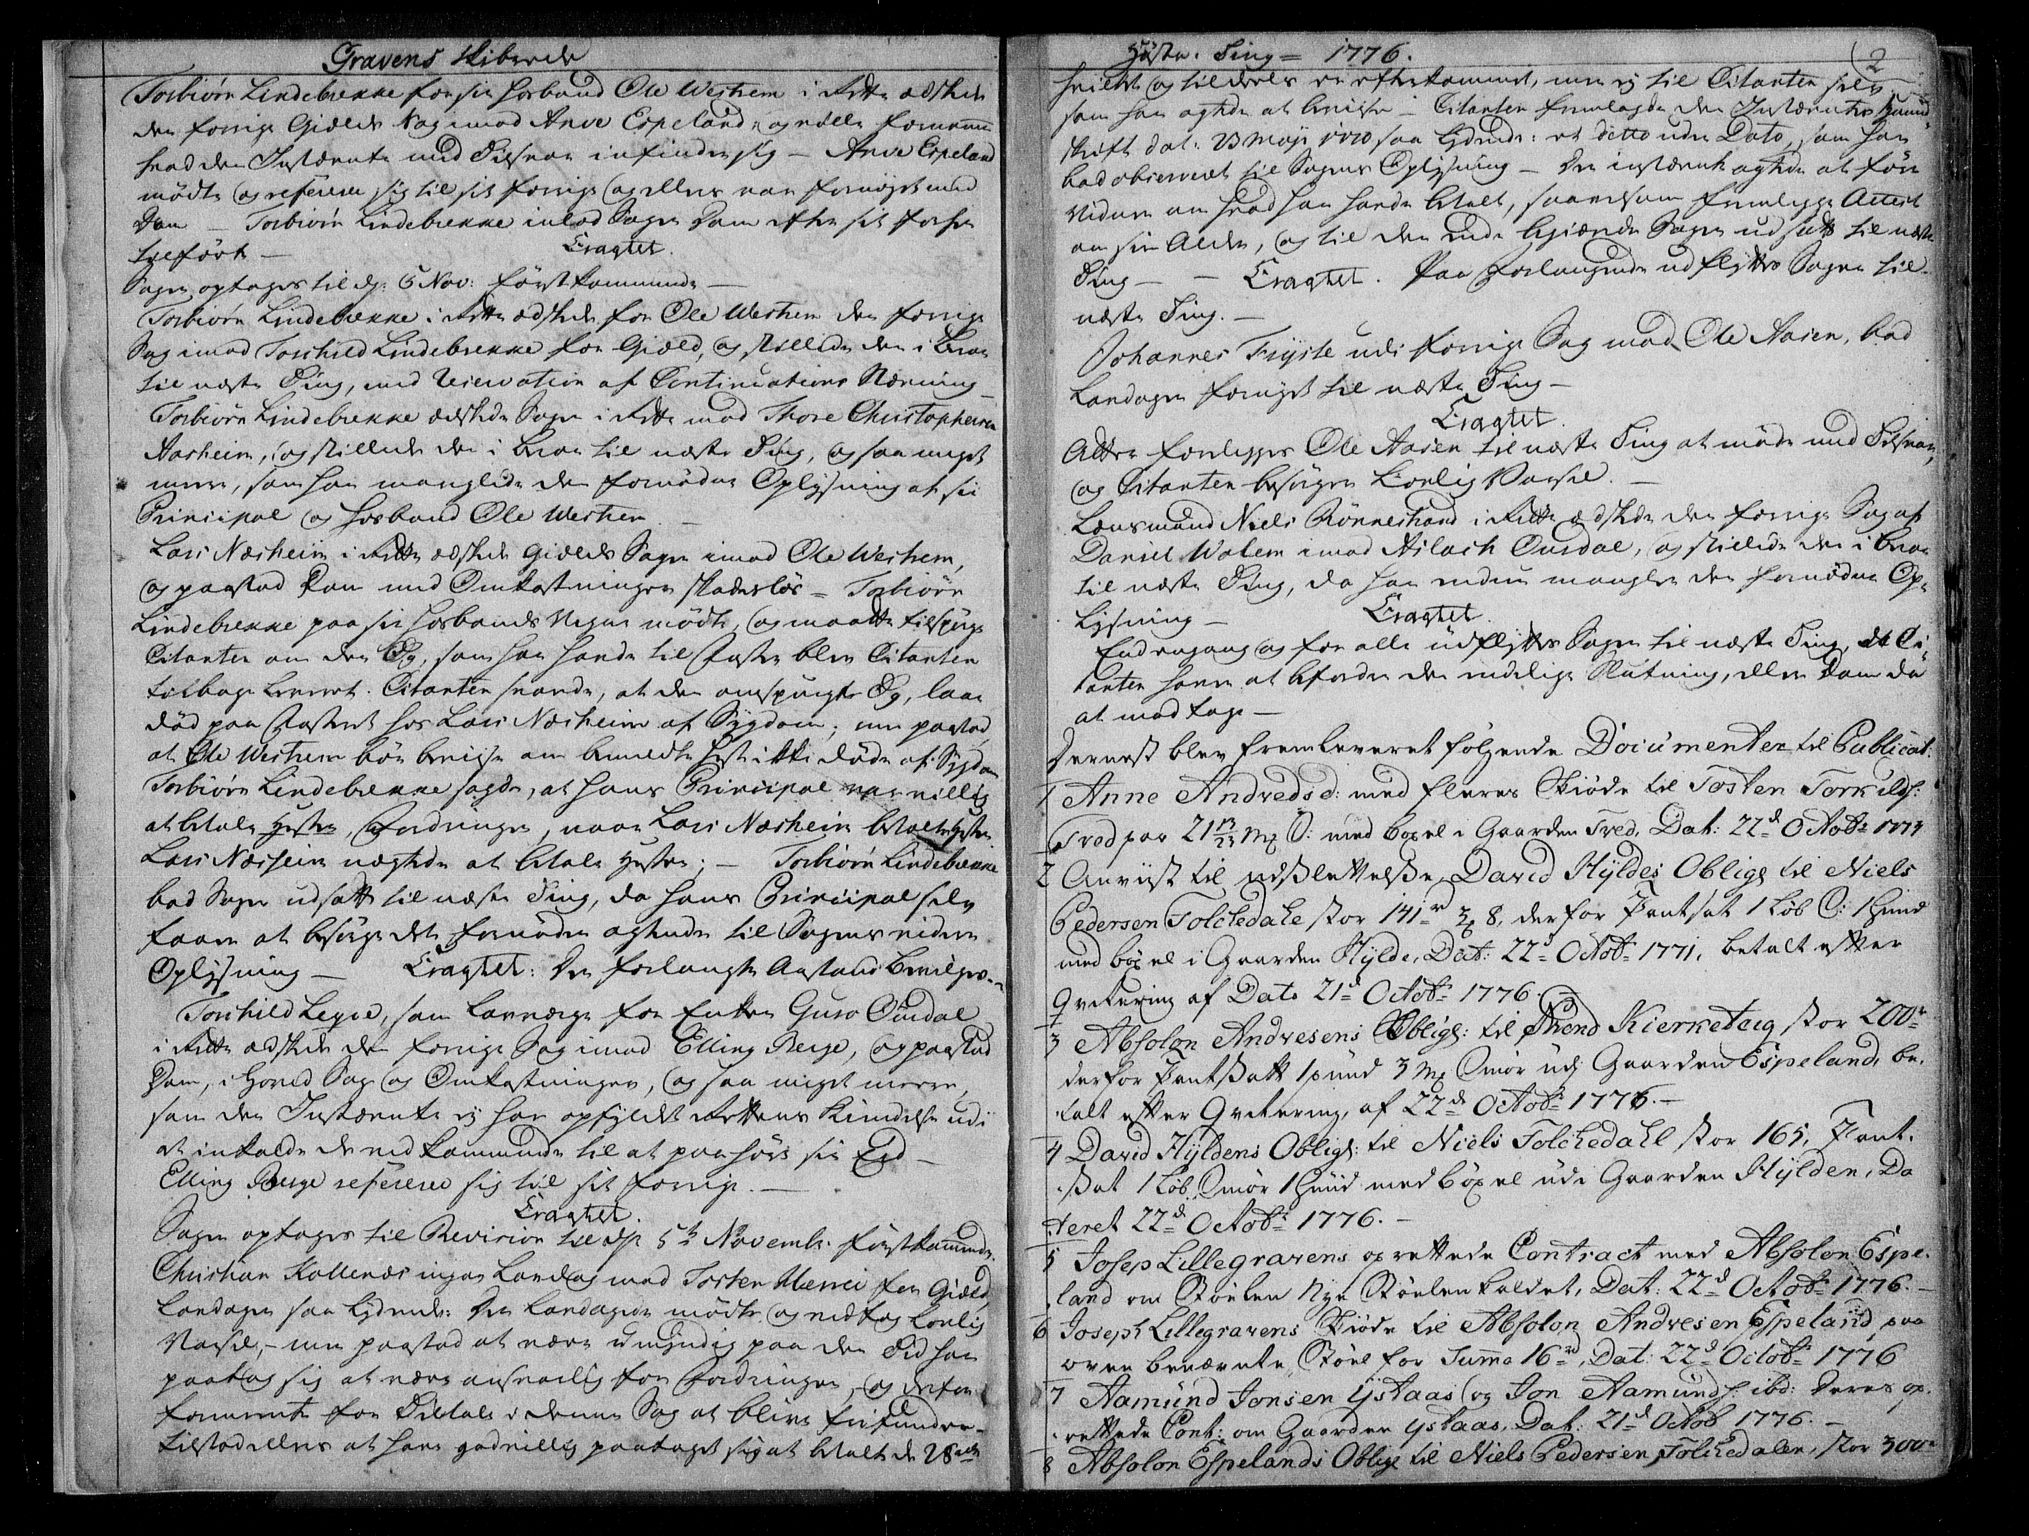 Gravens Skibrede
Torbiørn Lindebrekke for sin Hosbond Ole Westrem i Rette ædskede
den forrige Giælds Sag imod Arve Espeland, og vilde fornemme
hvad den Indstævnte med Tilsvar indfinder sig — Arve Espeland
mødte og refererer sig til sit forrige og ellers var fornøyet med
Dom — Torbiørn Lindebrekke indlod Sagen Dom efter sit forhen
tilførte — Eragtet.
Sagen optages til d: 5 Nov: førstkommende —
Torbiørn Lindebrekke i Rette ædskede for Ole Westrem den forrige
Sag imod Torchild Lindebrekke for Giæld, og stillede den i Beroe
til næste Ting, med Reservation af Continuations Stævning —
Torbiørn Lindebrekke ædskede Sagen i Rette mod Thore Christophersen
Aasheim, og stillede den i Beroe til næste Ting, og saa meget
meere, som han manglede den fornødne Oplysning af sin
Principal og Hosbond Ole Westrem —
Lars Næsheim i Rette ædskede Giælds Sagen imod Ole Westrem,
og paastod Dom med Omkostningen skadesløs — Torbiørn
Lindebrekke paa sin Hosbonds Vegne mødte, og maatte tilspørge
Citanten om den Øg, som han havde til Foster blev Citanten
tilbage leveret. Citanten svarede, at den omspurgte Øg, laae
død paa Fosteret hos Lars Næsheim af Sygdom; men paastod,
at Ole Westrem bør bevise om bemeldte Hest ikke døde af Sygdom
Torbiørn Lindebrekke sagde, at hans Principal var villig
at betale Hesten, Fordringen, naar Lars Næsheim betaler Hesten.
Lars Næsheim nægtede at betale Hesten; — Torbiørn Lindebrekke
bad Sagen udsatt til næste Ting, da hans Principal selv
faaer at besørge det fornødne agtende til Sagens videre
Oplysning — Eragtet: Den forlangte Anstand bevilges —
Torchild Legre, som Laugværge for Enken Guro Ousdal
i Rette ædskede den forrige Sag imod Elling Berge, og paastod
Dom, i Hoved Sag og Omkostningen, og saa meget meere,
som den Indstævnte ey har opfyldt Rettens Kiendelse udi
at indkalde de vedkommende til at paahøre sin Eed —
Elling Berge refererer sig til sit forrige. —
Eragtet.
Sagen optages til Revision til d: 5te Novembr: førstkommende.
Christian Kollenæs ingav Landsag mod Torsten Mæren for Giæld,
Landsagen saa lydende: Den Landsagede mødte og vedtog Lovlig
Varsel, — men paastod at være umyndig paa den Tid han
paatog sig at være ansvarlig for Fordringen, og derfor
formeente for Tiltale i denne Sag at blive frifunden —
tilstod ellers at have godvillig paataget sig at betale de 28 rdr
Høste. Ting — 1776.
2
hvilket og tildeels er efterkommet, men ey til Citanten selv
som han agtede at bevise — Citanten fremlagde den Indstævntes Haand
skrift dat: 23 Maji 1770 saa lydende: et detto uden Dato, som han
bad observeret til Sagens Oplysning — Den indstævnte agtede at føre
Vidner om hvad han havde betalt, saavelsom fremlegge Attest
om sin Alder, og til den ende begiærede Sagen udsatt til næste
Ting — Eragtet. Paa forlangende udflyttes Sagen til
næste Ting. —
Johannes Tryste udi forrige Sag mod Ole Aasen, bad
Landsagen fornyet til næste Ting —
Eragtet.
Atter forelegges Ole Aasen til næste Ting at møde med Tilsvar,
og Citanten besørger Lovlig Varsel. —
Lensmand Niels Rønnestrand i Rette ædskede den forrige Sag af
Daniel Walem imod Aslach Ousdal, og stillede den i Beroe
til næste Ting, da han endnu mangler den fornødne Op-
lysning — Eragtet.
End engang og for alle udflyttes Sagen til næste Ting, da Ci-
tanten haver at befordre den endelige Slutning, eller Dom da
at modtage —
Dernest blev fremleveret følgende Documenter til Publicat:
1 Anne Andvedsd: med fleres Skiøde til Tosten Torkilds:
Tved paa 21 13/23 Mk S: med bøxel i Gaarden Tved, Dat: 22d Octobr 1774
2 Anviist til udslettelse, David Hyldes Oblig: til Niels
Pedersen Tolchedale stor 141 rd 3 8, derfor Pantsat 1 Løb S: 1 Hund
med bøxel i Gaarden Hylde, Dat: 22d Octobr 1771, betalt efter
Qvitering af Dato 21d Octobr 1776. —
3 Absolon Andresens Oblig: til Svend Kierreteig stor 200 r
derfor Pantsatt 1 pund 3 Mk Smør udj Gaarden Espeland, be-
talt efter Qvitering, af 22d Octobr 1776. —
4 David Hyldens Oblig: til Niels Tolchedahl stor 165, Pant-
sat 1 Løb Smør 1 Huud med bøxel udi Gaarden Hylden, Da
teret 22d Octobr 1776. —
5 Josep Lillegravens oprettede Contract med Absolon Espe-
land om Stølen Nye Stølen kaldet, Dat: 22d Octobr 1776. —
6 Joseph Lillegravens Skiøde til Absolon Andresen Espeland paa
oven benævnte Støel for Summa 16 rd, Dat: 22d Octobr 1776
7 Aamund Jonsen Ystaas og Jon Aamunds: ibd: deres op-
rettede Cont: om Gaarden Ystaas, Dat. 21d Octob 1776. —
8 Absolon Espelands Oblige til Niels Pedersen Tolchedalen, stor 300 r